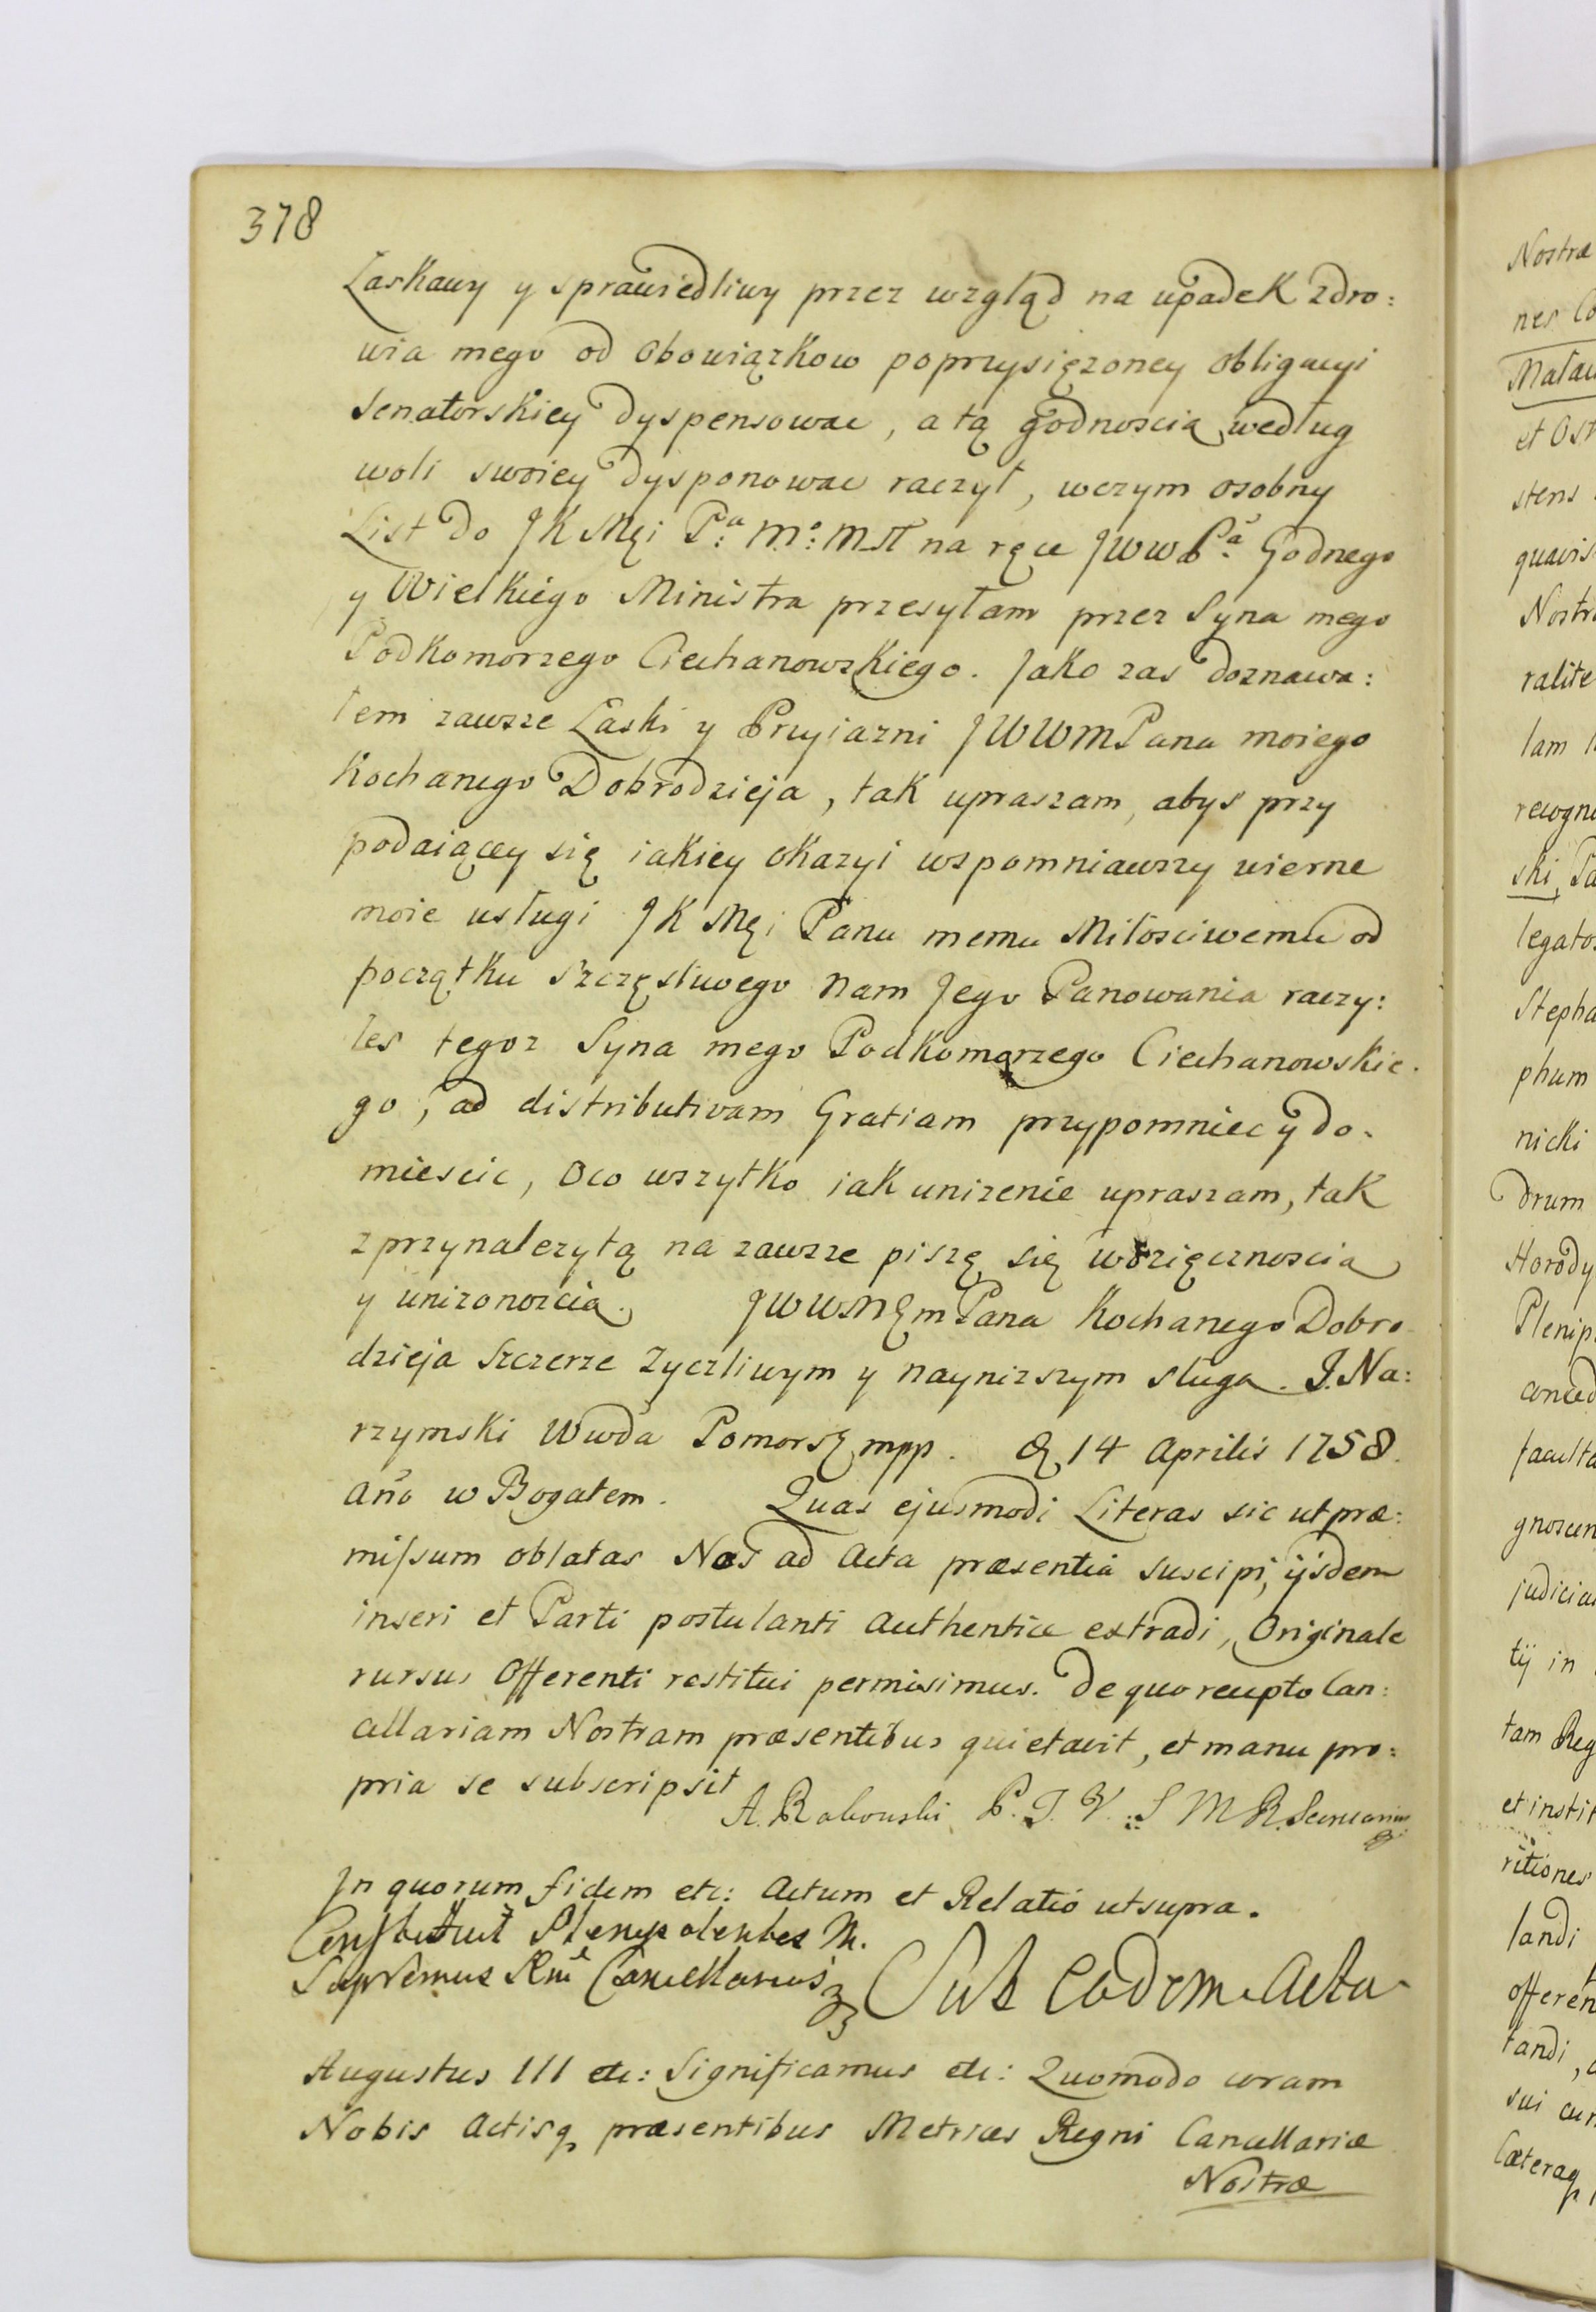 378
Łaskawy y sprawiedliwy przez wzgląd na upadek zdro:
wia mego od Obowiązkow poprzysięzoney obligacyi
Senatorskiey dyspensowac, a tą godnoscią według
woli swoiey dysponowac raczył, w czym osobny
List do JK Mci P:a M:o MN na ręce JWW P:a Godnego
y Wielkiego Ministra przesyłam przez Syna mego
Podkomorzego Ciechanowskiego. Jako zas doznawa:
łem zawsze Łaski y Przyiazni JWWMPana moiego
Kochanego Dobrodzieja, tak upraszam, abys przy
podaiącey się iakiey okazyi wspomniawszy wierne
moie usługi JK Mci Panu memu Miłosciwemu od
początku szczęsliwego nam Jego Panowania raczy:
łes tegoz Syna mego Podkomorzego Ciechanowskie.
go, ad distributivam Gratiam przypomniec y do-
miescic, Oco wszytko iak unizenie upraszam, tak
z przynalezytą na zawsze piszę się wdzięcznoscią
y unizonoscią. JWWMmPana Kochanego Dobro
dzieja Szczerze Zyczliwym y naynizszym sługa. J. Na:
rzymski Wwda Pomorsk mpp. d 14 Aprilis 1758.
Año w Bogatem. Quas ejusmodi Literas sic ut præ:
missum oblatas Nos ad Acta præsentia suscipi, ijsdem
inseri et Parti postulanti Authentice extradi, Originale
rursus Offerenti restitui permisimus. De quo recepto Can:
cellariam Nostram præsentibus quietavit, et manu pro:
pria se subscripsit
A. Rakowski P. T. V. S M R. Secretarius
In quorum fidem etc: Actum et Relatio ut supra.
Constituit Plenipotentes M.
Supremus Rni Cancellarius
Sub Eodem Actu
Augustus III etc: Significamus etc: Quomodo coram
Nobis Actisq præsentibus Metrices Regni Cancellariæ
Nostræ
Nostræ
nes
Mataw
et Ost
stens
quavis
Nostr
ralite
lam
recogn
ski, Pa
legato
Stepha
phum
nicki
drum
Horody
Plenip
conced
faculta
gnoscen
judicia
tij in
tam Reg
et instit
ritiones
landi
offeren
tandi,
sui cur
Cæteraq